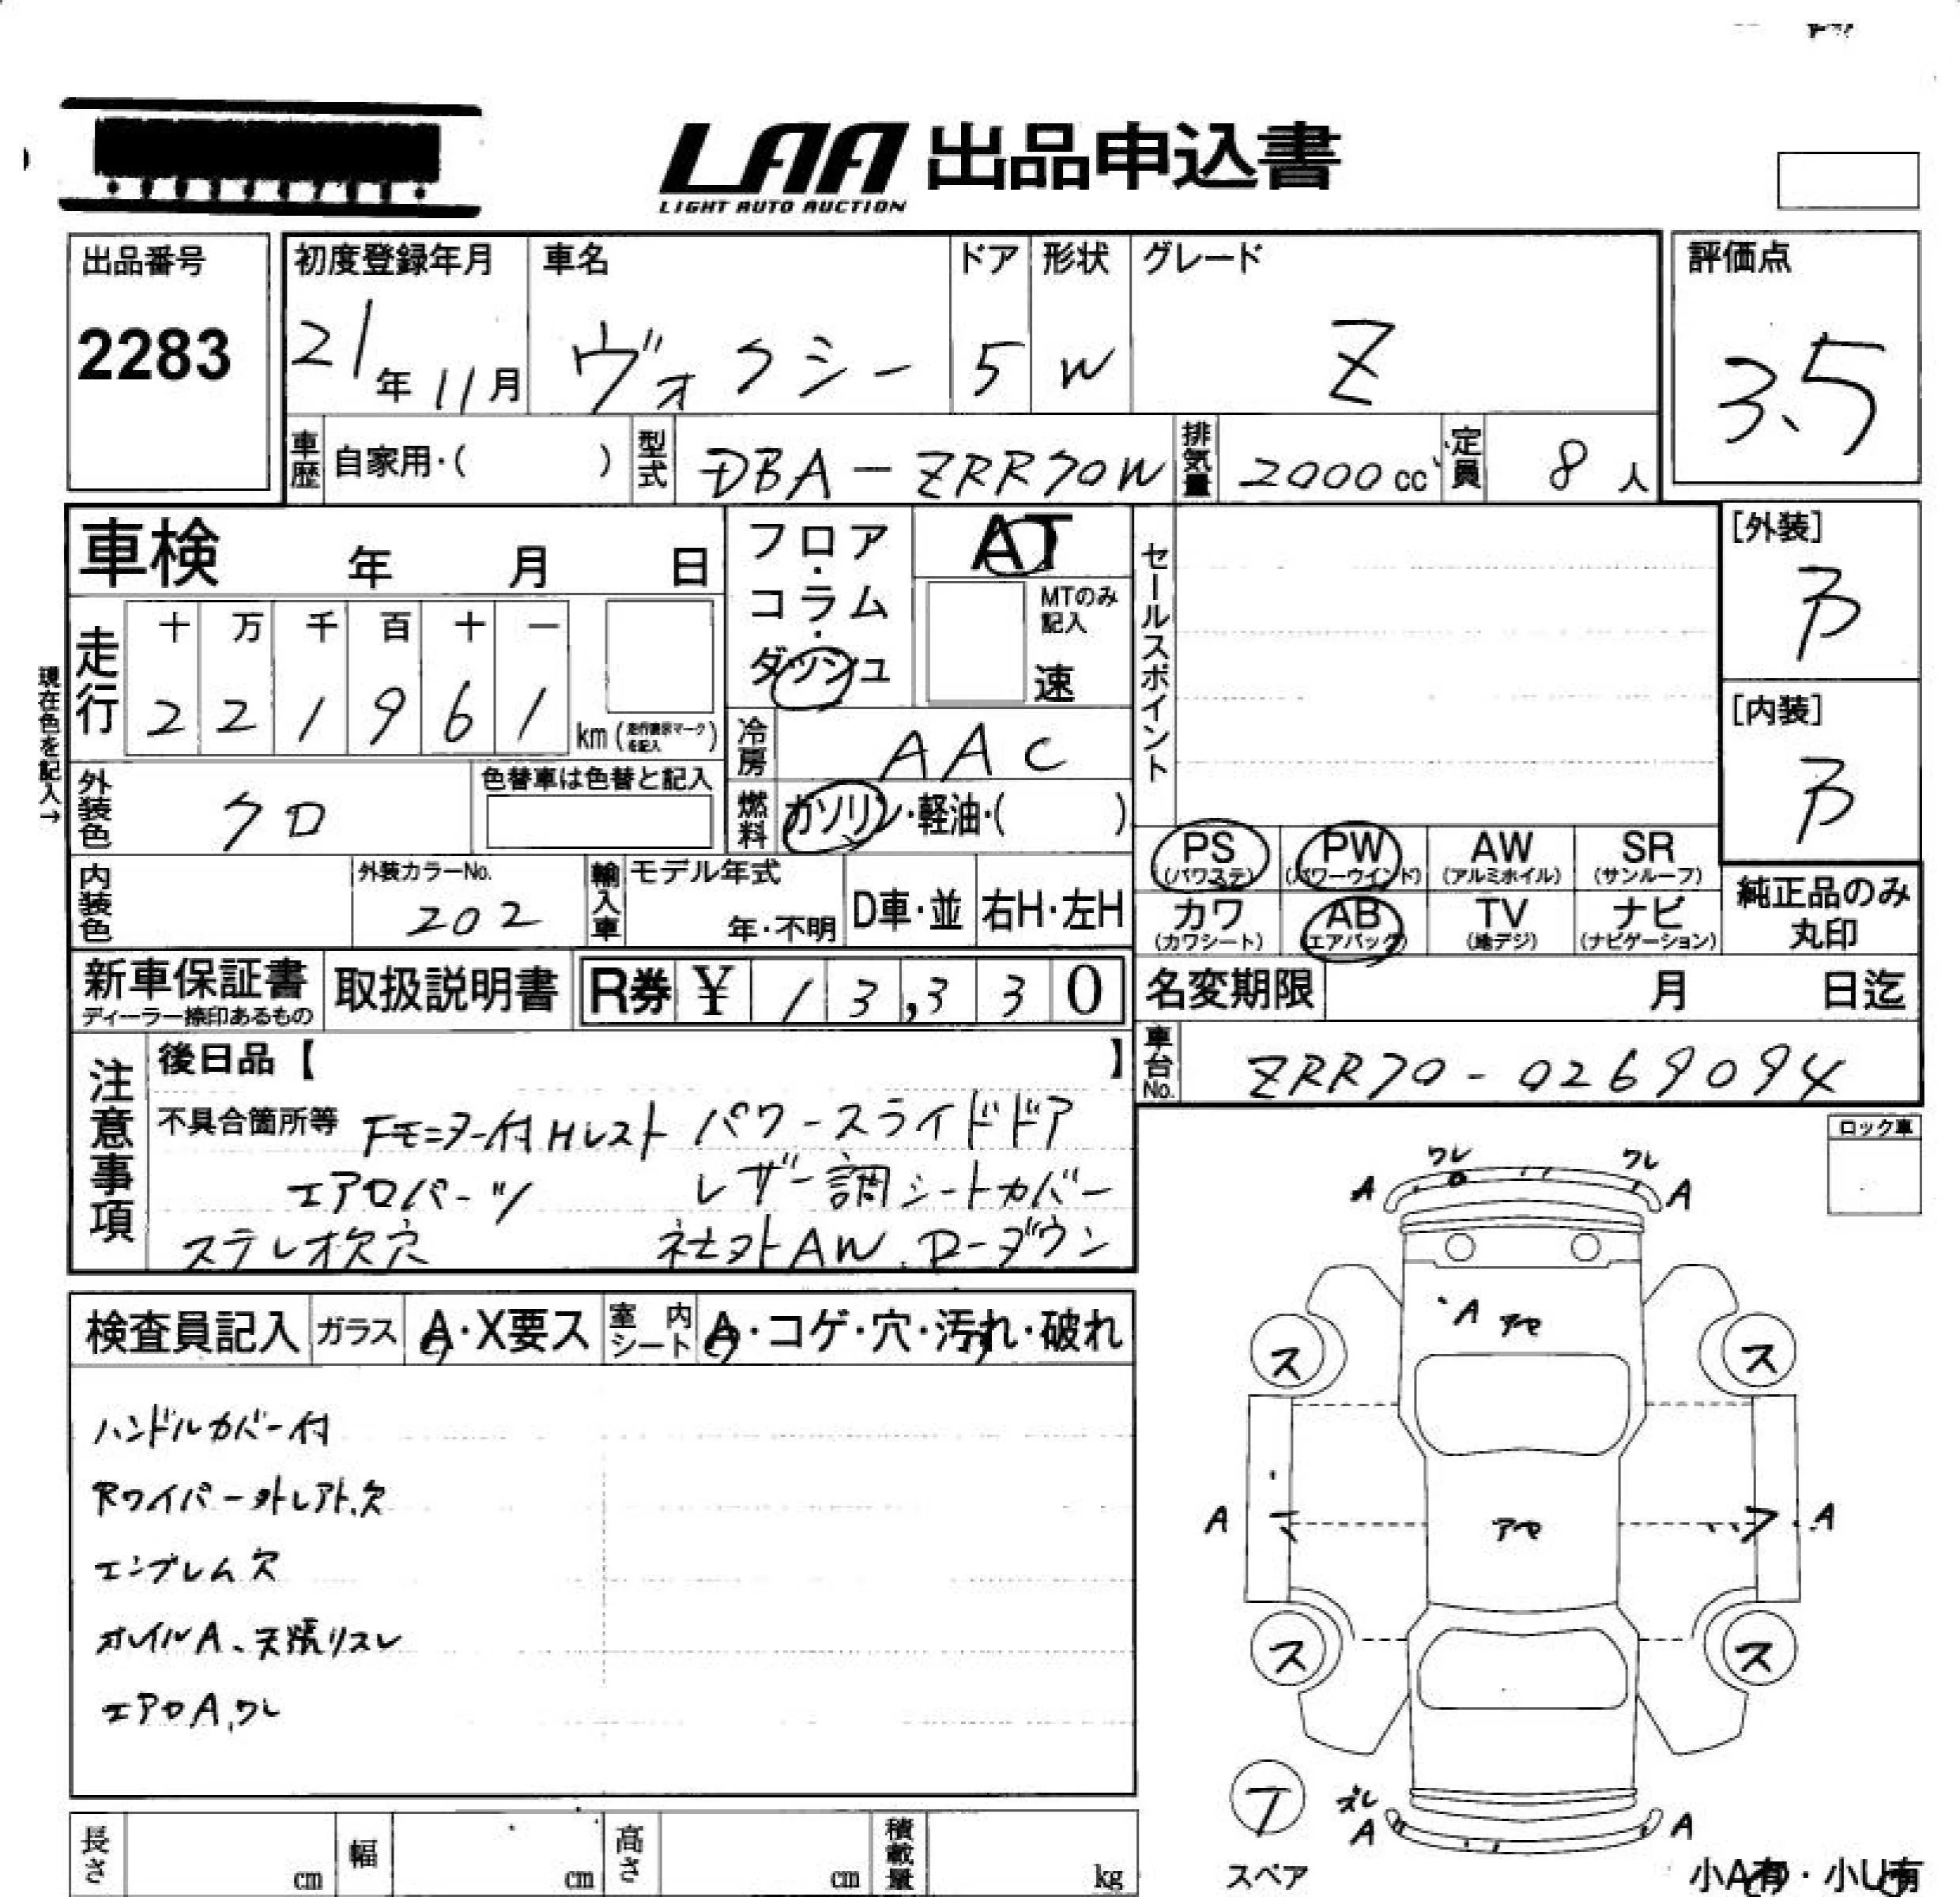 LAA 出品申込書
LIGHT AUTO AUCTION
出品番号
2283
初度登録年月
21年11月
車名
ヴォクシー
ドア
5
形状
W
グレード
Z
評価点
3.5
車歴 自家用・( )
型式 DBA-ZRR70W
排気量 2000cc
定員 8人
車検 年 月 日
フロア・コラム・ダッシュ
AT
MTのみ記入
速
セールスポイント
[外装]
[内装]
現在色を記入→
走行
十 万 千 百 十 一
2 2 1 9 6 1 km
冷房 AAC
外装色 クロ
色替車は色替と記入
燃料 ガソリン・軽油・( )
内装色
外装カラーNo.
202
輸入車
モデル年式
年・不明
D車・並
右H・左H
PS (パワステ)
PW (パワーウインド)
AW (アルミホイル)
SR (サンルーフ)
カワ (カワシート)
AB (エアバッグ)
TV (地デジ)
ナビ (ナビゲーション)
純正品のみ
丸印
新車保証書
ディーラー捺印あるもの
取扱説明書
R券 ¥ 13,330
名変期限 月 日迄
車台No. ZRR70-0269094
注意事項
後日品【 】
不具合箇所等 Fモニター付Hレスト パワースライドドア
エアロパーツ レザー調シートカバー
ステレオ欠穴 社外AW、ローダウン
ロック車
検査員記入 ガラス A・X要ス 室内シート A・コゲ・穴・汚れ・破れ
ハンドルカバー付
Rワイパー外レアト、欠
エンブレム欠
オイルA、天張リスレ
エアロA、ワレ
ワレ ワレ
A A
A アセ
ス ス
A アセ A
ス ス
A A
スペア
小A有・小U有
長さ cm 幅 cm 高さ cm 積載量 kg